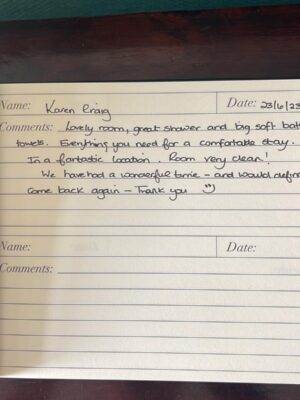 Name: Karen Craig Date: 23/6/23
Comments: Lovely room, great shower and big soft bath
towels. Everything you need for a comfortable stay.
In a fantastic location. Room very clean!
We have had a wonderful time - and would
come back again - Thank you
Name: Date:
Comments: